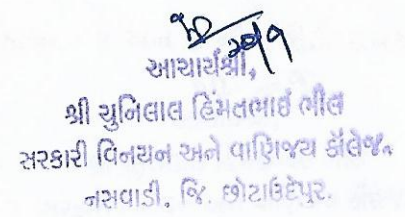 આચાર્યશ્રી,
શ્રી ચુનિલાલ હિંમતભાઈ ભીલ
સરકારી વિનયન અને વાણિજ્ય કૉલેજ.
નસવાડી, જિ. છોટાઉદેપુર.